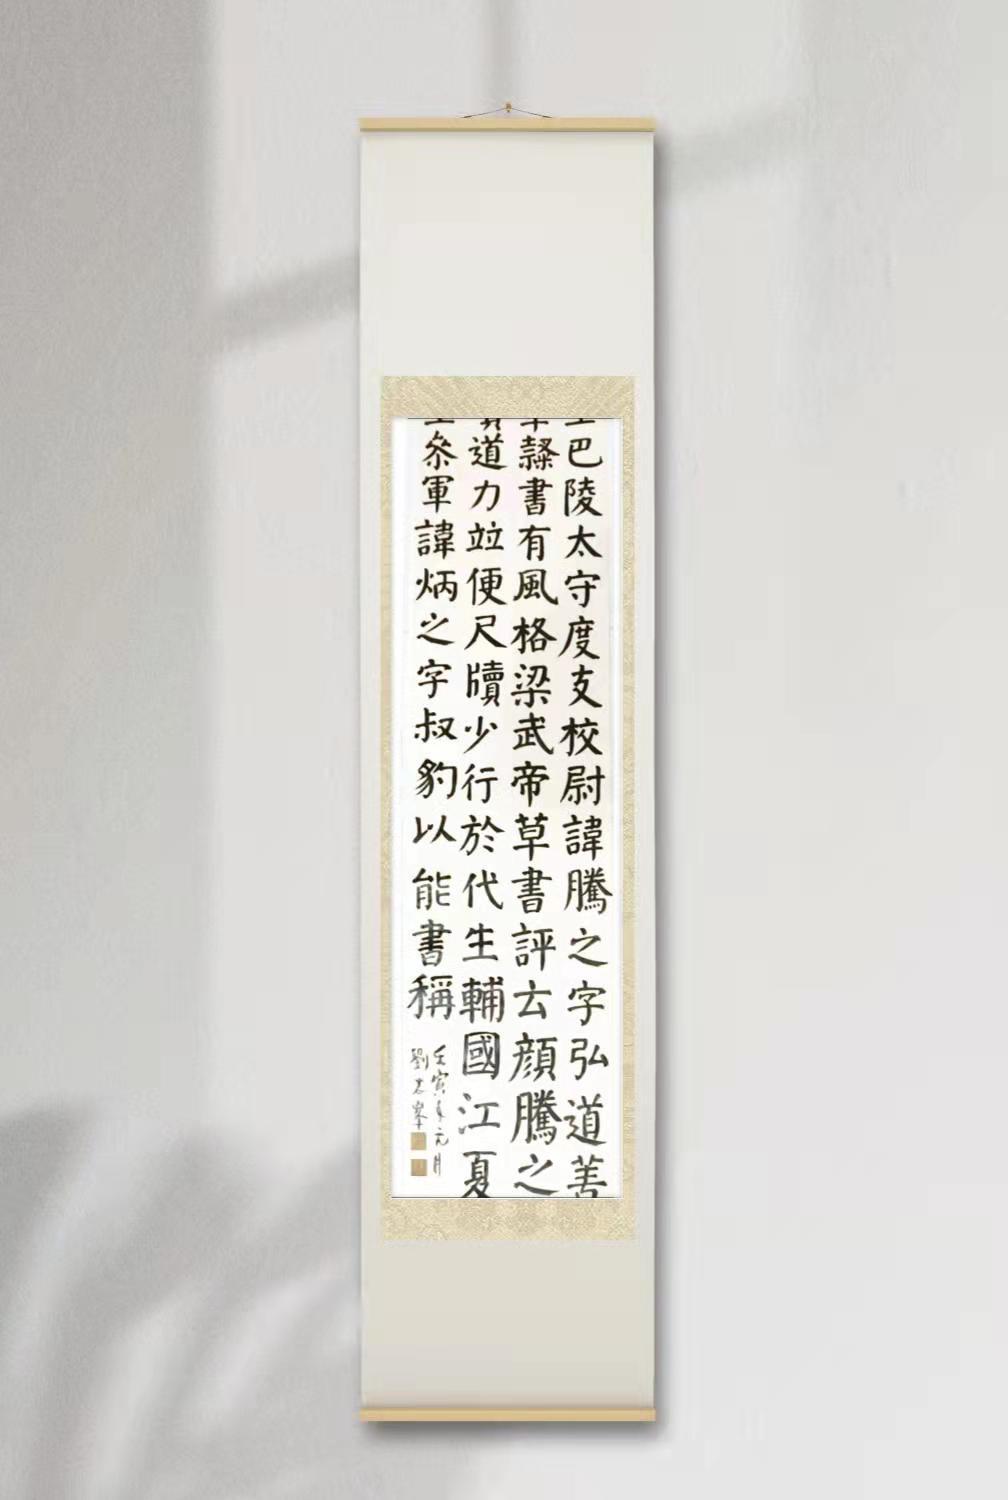 巴陵太守度支校尉諱騰之字弘道善
隸書有風格梁武帝草書評云顔騰之
道力竝便尺牘少行於代生輔國江夏
叅軍諱炳之字叔豹以能書稱
壬寅年元月
劉